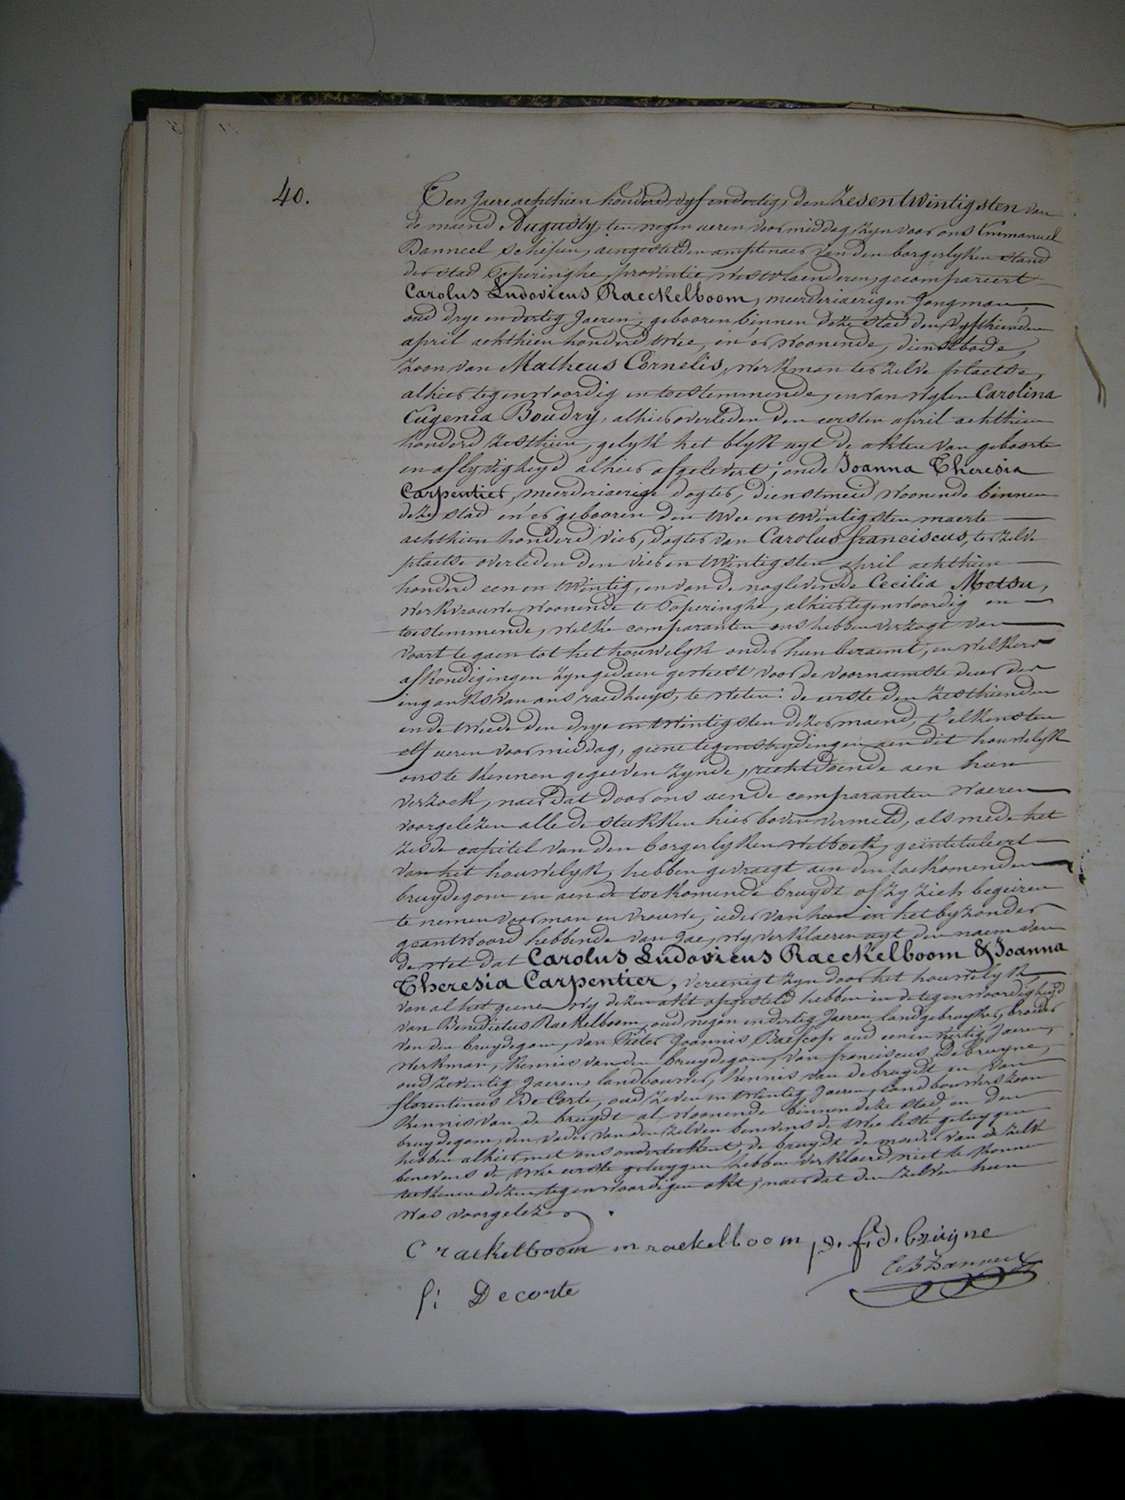 40.
Ten Jaere achthien honderd vyf en dertig, den Zesentwintigsten van
de maend Augusty, ten negen ueren voormiddag, zyn voor ons Emmanuel
Banneel Schepen, aengestelden amptenaer van den borgerlyken stand
der stad Poperinghe, provintie Westvlaenderen, gecompareert
Carolus Ludovicus Raeckelboom, meerderjaerigen Jongman,
oud drye en dertig Jaeren, gebooren binnen deze stad den vyfthienden
april achthien honderd twee, en er woonende, dienstbode,
zoon van Matheus Cornelis, werkman ter zelve plaetse,
alhier tegenwoordig en toestemmende, en van wylen Carolina
Eugenia Boudry, alhier overleden den eersten april achthien
honderd zesthien, gelyk het blykt uyt de akten van geboorte
en aflyvigheyd alhier afgelevert; ende Joanna Theresia
Carpentier, meerderjaerige dogter, dienstmeid woonende binnen
deze stad en er gebooren den twee en twintigsten maerte
achthien honderd vier, dogter van Carolus franciscus, ter zelve
plaetse overleden den vier en twintigsten april achthien
honderd een en twintig, en van de noglevende Cecilia Motsu,
werkvrouwe, woonende te Poperinghe, alhier tegenwoordig en
toestemmende, welke comparanten ons hebben verzogt van
voort te gaen tot het houwelyk onder hun beraemt, en welkers
afkondigingen zyn gedaen geweest voor de voornaemste deure der
ingangs van ons raedhuys, te weten: de eerste den zesthienden
en de tweede den drye en twintigsten dezer maend, t'elkensten
elf ueren voormiddag, geene tegenstrydingen aen dit houwelyk
ons te kennen gegeeven zynde, rechtdoende aen hun
verzoek, naer dat door ons aen de comparanten waeren
voorgelezen alle de stukken hier boven vermeld, als mede het
zesde capitel van den borgerlyken wetboek, geintituleert
van het houwelyk, hebben gevraegt aen den toekomenden
bruydegom en aen de toekomende bruydt of zy zich begeiren
te nemen voor man en vrouwe, ieder van hun in het byzonder
geantwoord hebbende van Jae, wy verklaeren uyt den naem van
de wet dat Carolus Ludovicus Raeckelboom & Joanna
Theresia Carpentier, vereenigt zyn door het houwelyk,
van al het geene wy dezen akt opgesteld hebben in de tegenwoordigheyd
van Benedictus Raekelboom, oud negen en dertig Jaeren, landgebruyker, broeder
van den bruydegom, van Pieter Joannis Baescop oud een en vertig Jaeren,
werkman, kennis van den bruydegom, van franciscus Debruyne,
oud zeventig Jaeren, landbouwer, kennis van de bruydt en van
florentinus De Corte, oud zeven en twintig Jaeren, landbouwers zoon
kennis van de bruydt al woonende binnen deze stad en den
bruydegom, den vader van den zelven benevens de twee leste getuygen
hebben alhier met ons onderteekent, de bruydt de moeder van de zelve
benevens de twee eerste getuygen hebben verklaerd niet te konnen
teekenen dezen tegenwoordigen akt, naer dat den zelven hun
was voorgelezen
C raekelboom m raekelboom p. f. d. bruyne
f: Decorte E. B Banneel